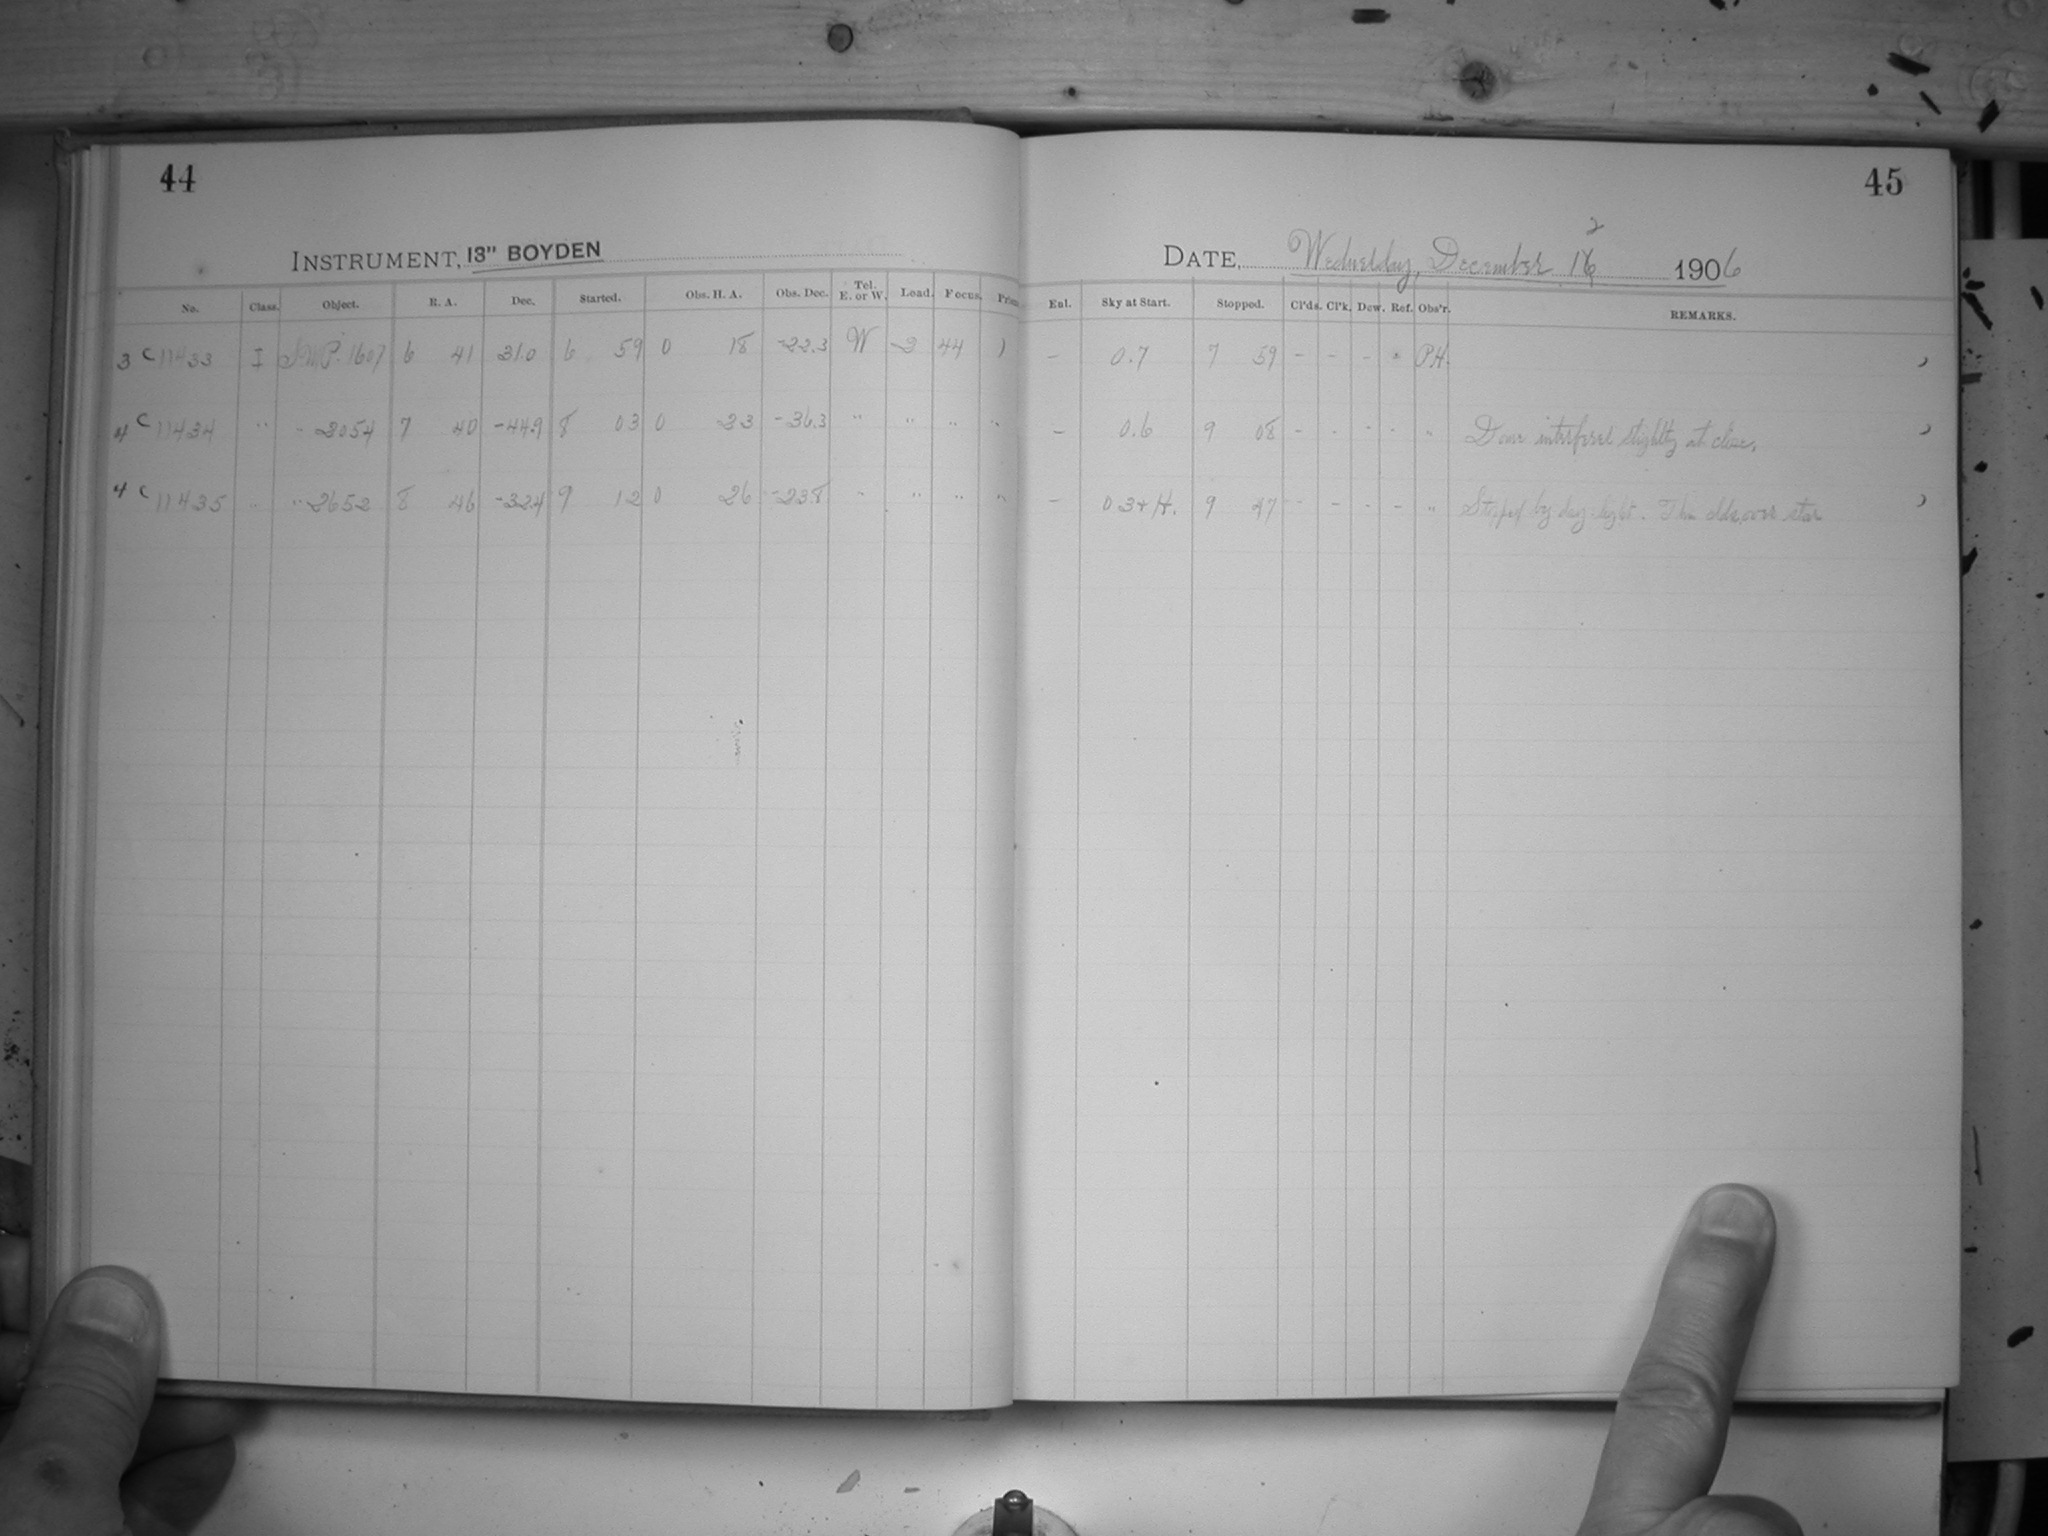 44
INSTRUMENT, 13" BOYDEN
No. Class. Object. R. A. Dec. Started. Obs. H. A. Obs. Dec. Tel. E. or W. Load. Focus. Prism
3 C 11433 I 1607 6 41 31.0 6 59 0 18 -22.3 W 2 44 )
4 C 11434 " " 3054 7 40 -44.9 8 03 0 23 -36.3 " " " "
4 C 11435 " " 2652 8 46 -32.4 9 12 0 26 -23.8 " " " "
45
DATE, Wednesday, December 1906
Enl. Sky at Start. Stopped. Cl'ds. Cl'k. Dew. Ref. Obs'r. REMARKS.
- 0.7 7 59 - - - - P.H. )
- 0.6 9 08 - - - - " Dome interfered slightly at close. )
- 0.3+H. 9 47 - - - - " Stopped by day light. Thin clds. over star )